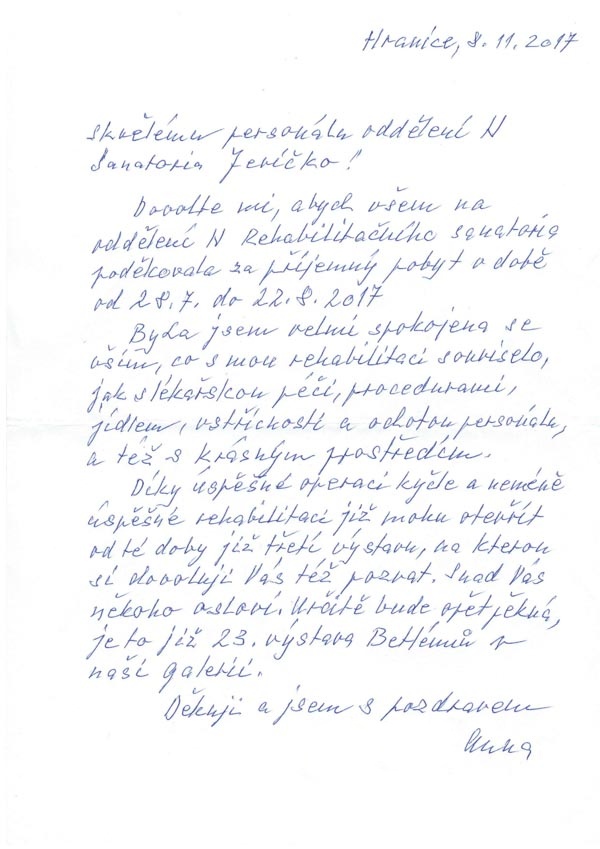 Hranice, 8. 11. 2017
skvělému personálu oddělení N
Sanatoria Jevíčko!
Dovolte mi, abych všem na
oddělení N Rehabilitačního sanatoria
poděkovala za příjemný pobyt v době
od 28.7. do 22.8. 2017
Byla jsem velmi spokojena se
vším, co s mou rehabilitací souviselo,
jak s lékařskou péčí, procedurami,
jídlem, vstřícností a ochotou personálu,
a též s krásným prostředím.
Díky úspěšné operaci kyčle a neméně
úspěšné rehabilitaci již mohu otevřít
od té doby již třetí výstavu, na kterou
si dovoluji Vás též pozvat. Snad Vás
někoho osloví. Určitě bude opět pěkná,
je to již 23. výstava Betlémů v
naší galerii.
Děkuji a jsem s pozdravem
Anna